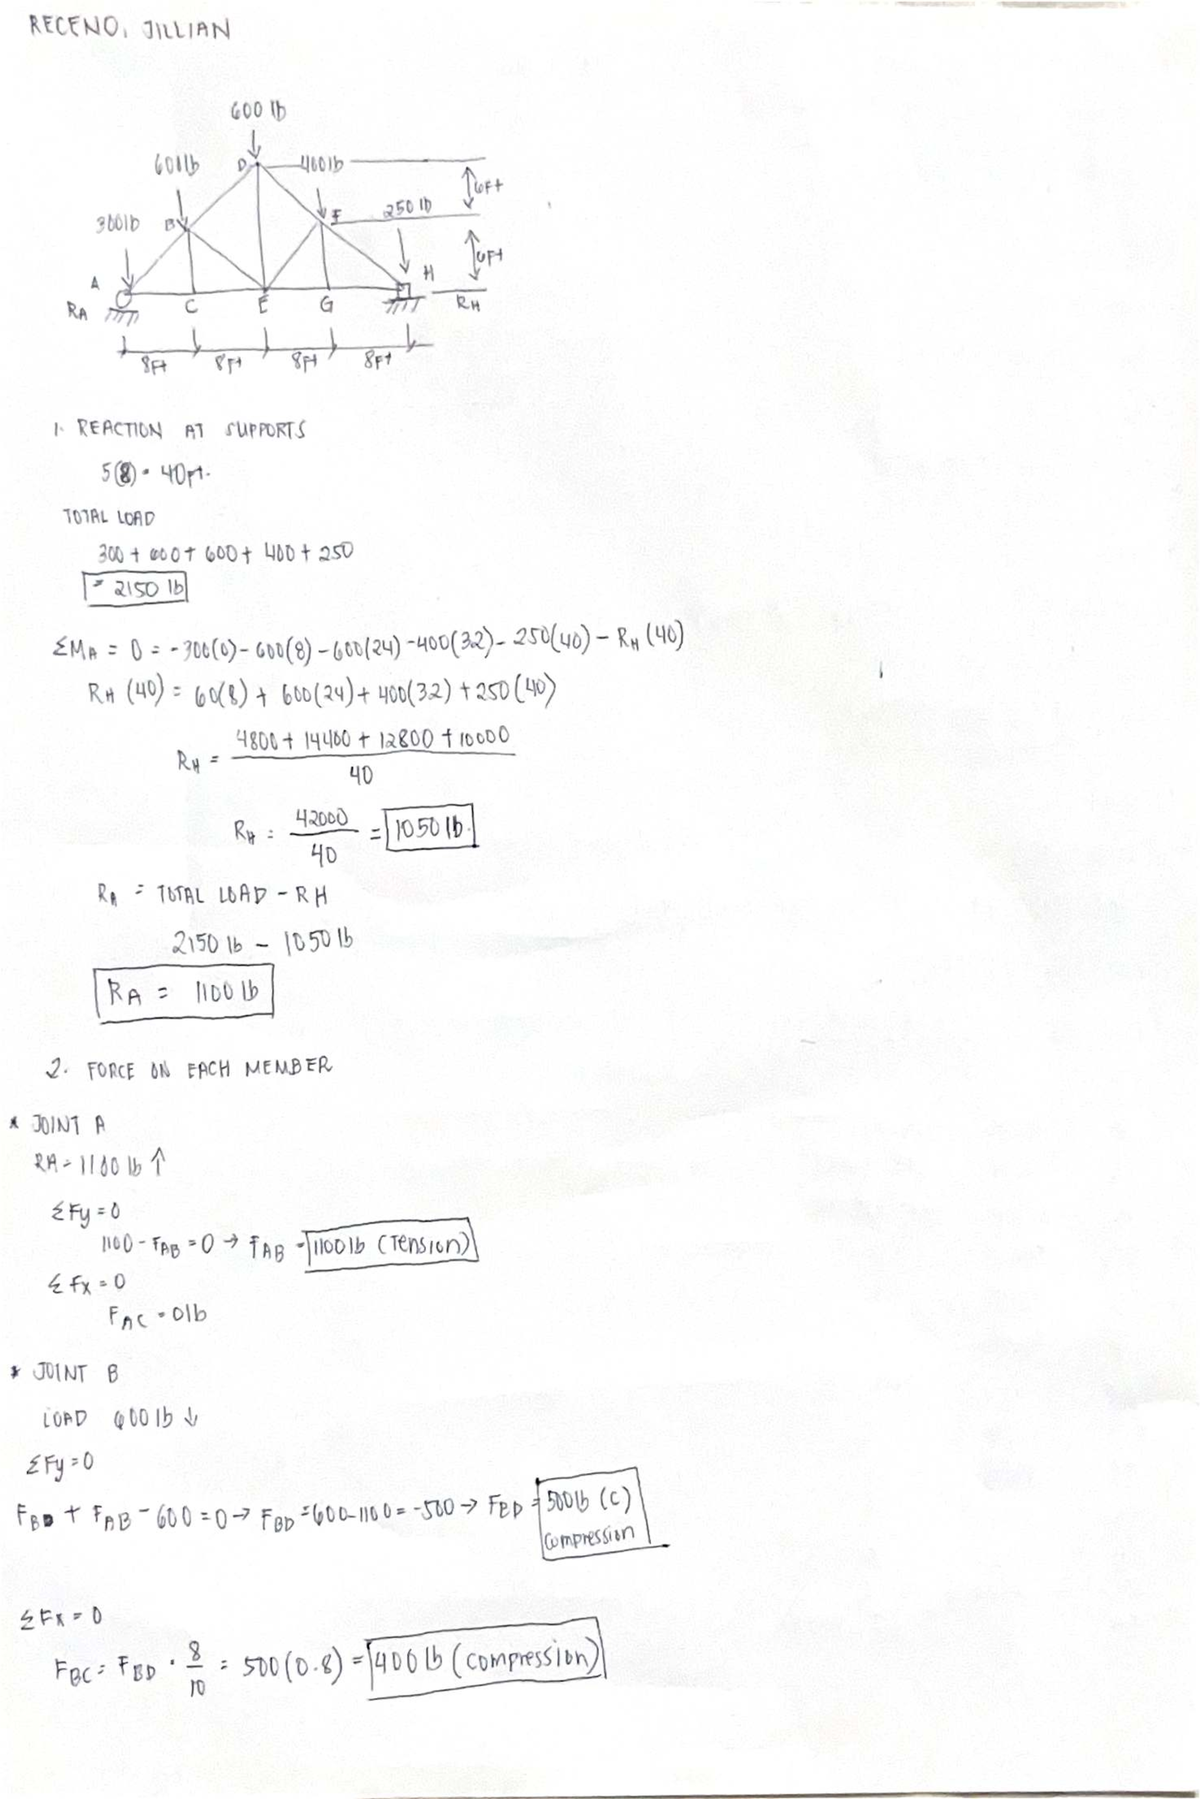 RECENO, JILLIAN
600 lb
600lb D 400lb
6Ft
300lb B F 250 lb
6Ft
A H
RA C E G RH
8Ft 8Ft 8Ft 8Ft
1. REACTION AT SUPPORTS
5(8) = 40ft.
TOTAL LOAD
300 + 600 + 600 + 400 + 250
= 2150 lb
ΣMA = 0 = -300(0) - 600(8) - 600(24) - 400(32) - 250(40) - RH (40)
RH (40) = 60(8) + 600(24) + 400(32) + 250(40)
RH = 4800 + 14400 + 12800 + 10000
40
RH = 42000 = 1050 lb.
40
RA = TOTAL LOAD - RH
2150 lb - 1050 lb
RA = 1100 lb
2. FORCE ON EACH MEMBER
* JOINT A
RA = 1100 lb ↑
ΣFy = 0
1100 - FAB = 0 → FAB = 1100 lb (Tension)
ΣFx = 0
FAC = 0lb
* JOINT B
LOAD 600 lb ↓
ΣFy = 0
FBD + FAB - 600 = 0 → FBD = 600-1100 = -500 → FBD = 500lb (C)
compression
ΣFx = 0
FBC = FBD · 8 = 500(0.8) = 400 lb (compression)
10